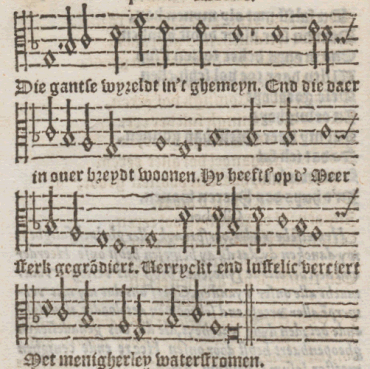 Die gantse wyreldt in't ghemeyn. End die daer
in ouer breydt woonen. Hy heefts' op d' Meer
sterk gegrõdiert. Uerryckt end lustelic verciert
Met menigherley waterstromen.